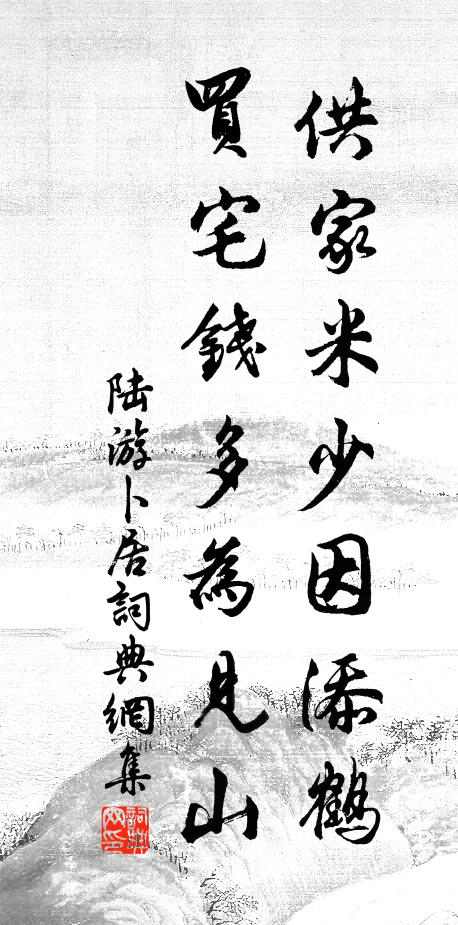 供家米少因添鶴
買宅錢多為見山
陆游卜居詞典網集